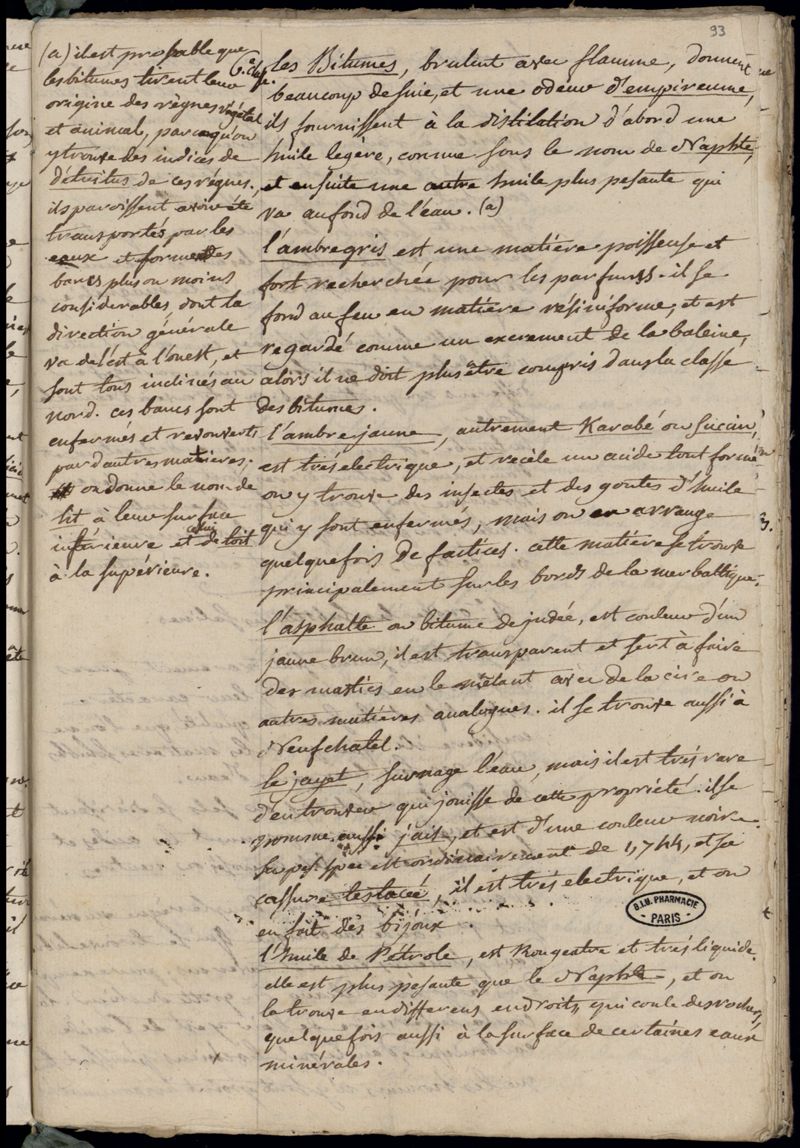 93
(a) il est probable que
les bitumes tirent leur
origine des règnes végétal
et animal, parcequ'on
y trouve des indices de
détritus de ces règnes.
ils paroissent avoir été
transportés par les
eaux et former des
bancs plus ou moins
considerables, dont la
direction générale
va de l'est à l'ouest, et
sont tous inclinés au
nord. ces bancs sont
enfermés et recouverts
par d'autres matières;
on donne le nom de
lit à leur surface
inférieure et celui de toit
à la supérieure.
6.e class.
les Bitumes, brulent avec flamme, donnent
beaucoup de suie, et une odeur d'empireume,
ils fournissent à la distilation d'abord une
huile legère, connue sous le nom de Naphte,
et ensuite une autre huile plus pesante qui
va au fond de l'eau. (a)
l'ambre gris est une matière poisseuse et
fort recherchée pour les parfums. il se
fond au feu en matière résiniforme, et est
regardé comme un excrement de la baleine,
alors il ne doit plus être compris dans la classe
des bitumes.
l'ambre jaune, autrement Karabé ou Succin,
est très electrique, et recèle un acide tout formé
on y trouve des insectes et des goutes d'huile
qui y sont enfermés, mais on en arrange
quelquefois de factices. cette matière se trouve
principalement sur les bords de la mer baltique.
l'asphalte ou bitume de judée, est couleur d'un
jaune brun, il est transparent et sert à faire
des mastics en le mêlant avec de la cire ou
autres matières analogues. il se trouve aussi à
Neufchatel.
le jayet, surnage l'eau, mais il est très rare
d'en trouver qui jouisse de cette propriété. il se
nomme aussi jais, et est d'une couleur noire.
sa pes. spec est ordinairement de 1,744, et sa
cassure testacée, il est très electrique, et on
en fait des bijoux.
B.I.U. PHARMACIE
PARIS
l'huile de Pétrole, est Rougeatre et très liquide.
elle est plus pesante que le Naphte, et on
la trouve en differens endroits, qui coule des rochers,
quelquefois aussi à la surface de certaines eaux
minérales.